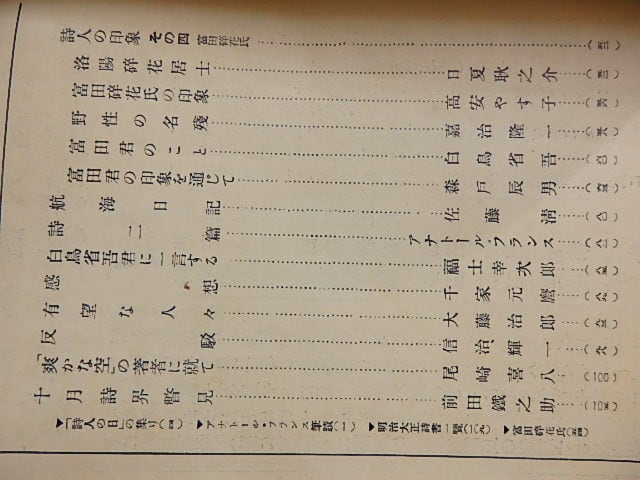 詩人の印象 その四 富田碎花氏
洛陽碎花居士 日夏耿之介
富田碎花氏の印象 高安やす子
野性の名殘 嘉治隆一
富田君のこと 白鳥省吾
富田君の印象を通じて 森戸辰男
航海日記 佐藤淸
詩二篇 アナトール・フランス
白鳥省吾君に一言する 福士幸次郎
感想 千家元麿
有望な人々 大藤治郎
反駁 信治、輝一
「爽かな空」の著者に就て 尾崎喜八 (100)
十月詩界瞥見 前田鐵之助
▼「詩人の日」の集り
▼アナトール・フランス筆蹟(一)
▼明治大正詩書一覽
▼富田碎花氏